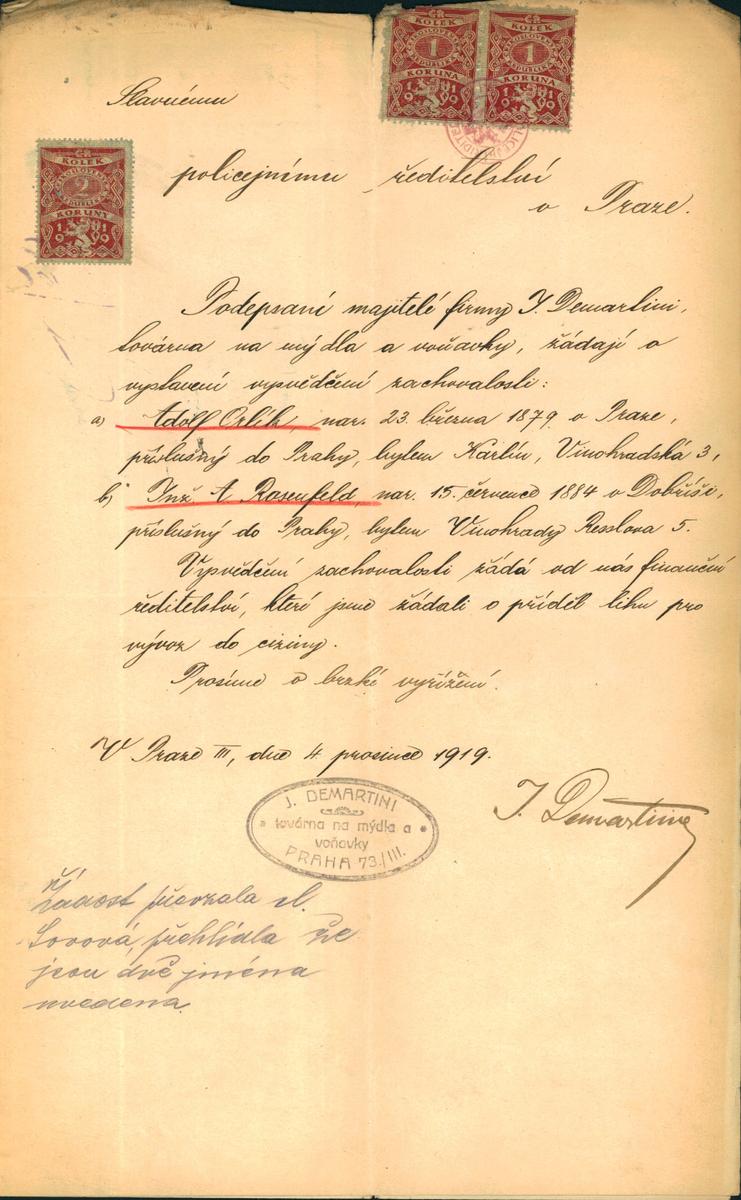 ČR
KOLEK
ČESKOSLOVENSKÁ
1
REPUBLIKA
KORUNA
1919
ČR
KOLEK
ČESKOSLOVENSKÁ
1
REPUBLIKA
KORUNA
1919
Slavnému
ČR
KOLEK
2
KORUNY
1919
policejnímu ředitelství
v Praze.
Podepsaní majitelé firmy J. Demartini,
továrna na mýdla a voňavky, žádají o
vystavení vysvědčení zachovalosti:
a) Adolf Orlík, nar. 23. března 1879 v Praze,
příslušný do Prahy, bytem Karlín, Vinohradská 3,
b) Inž. A Rosenfeld, nar. 15. července 1884 v Dobříši,
příslušný do Prahy, bytem Vinohrady Resslova 5.
Vysvědčení zachovalosti žádá od nás finanční
ředitelství, které jsme žádali o příděl lihu pro
vývoz do ciziny.
Prosíme o brzké vyřízení.
V Praze III, dne 4. prosince 1919.
J. Demartini
J. DEMARTINI
továrna na mýdla a
voňavky
PRAHA 73./III.
Žádost převzala sl.
přehlídla že
jsou dvě jména
uvedena.